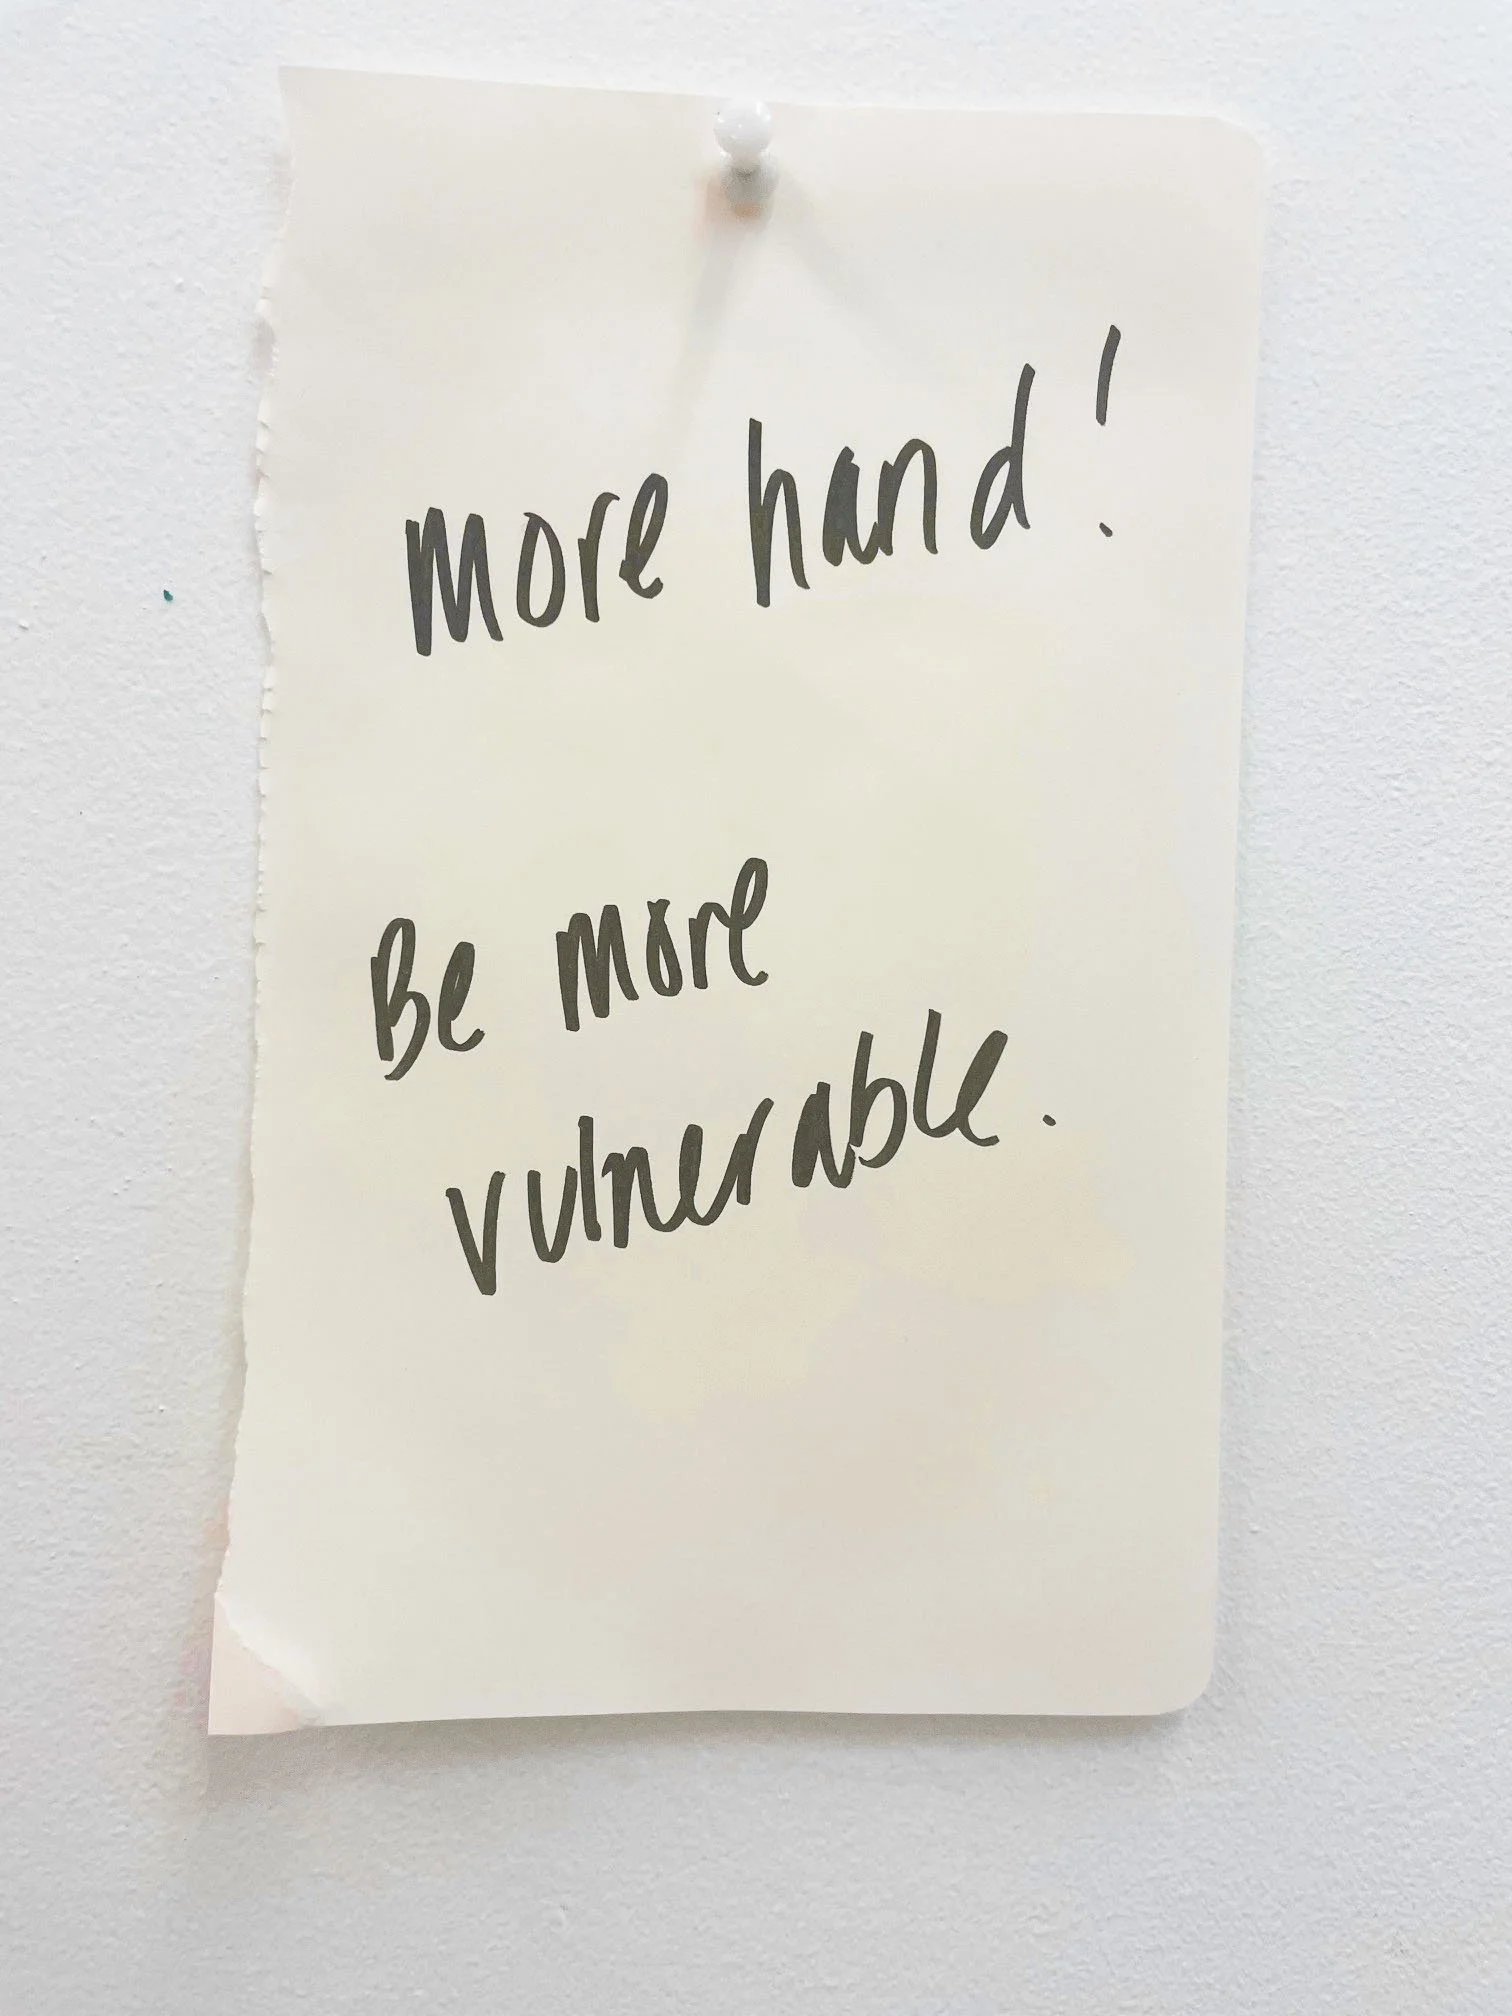 more hand!
Be more
vulnerable.